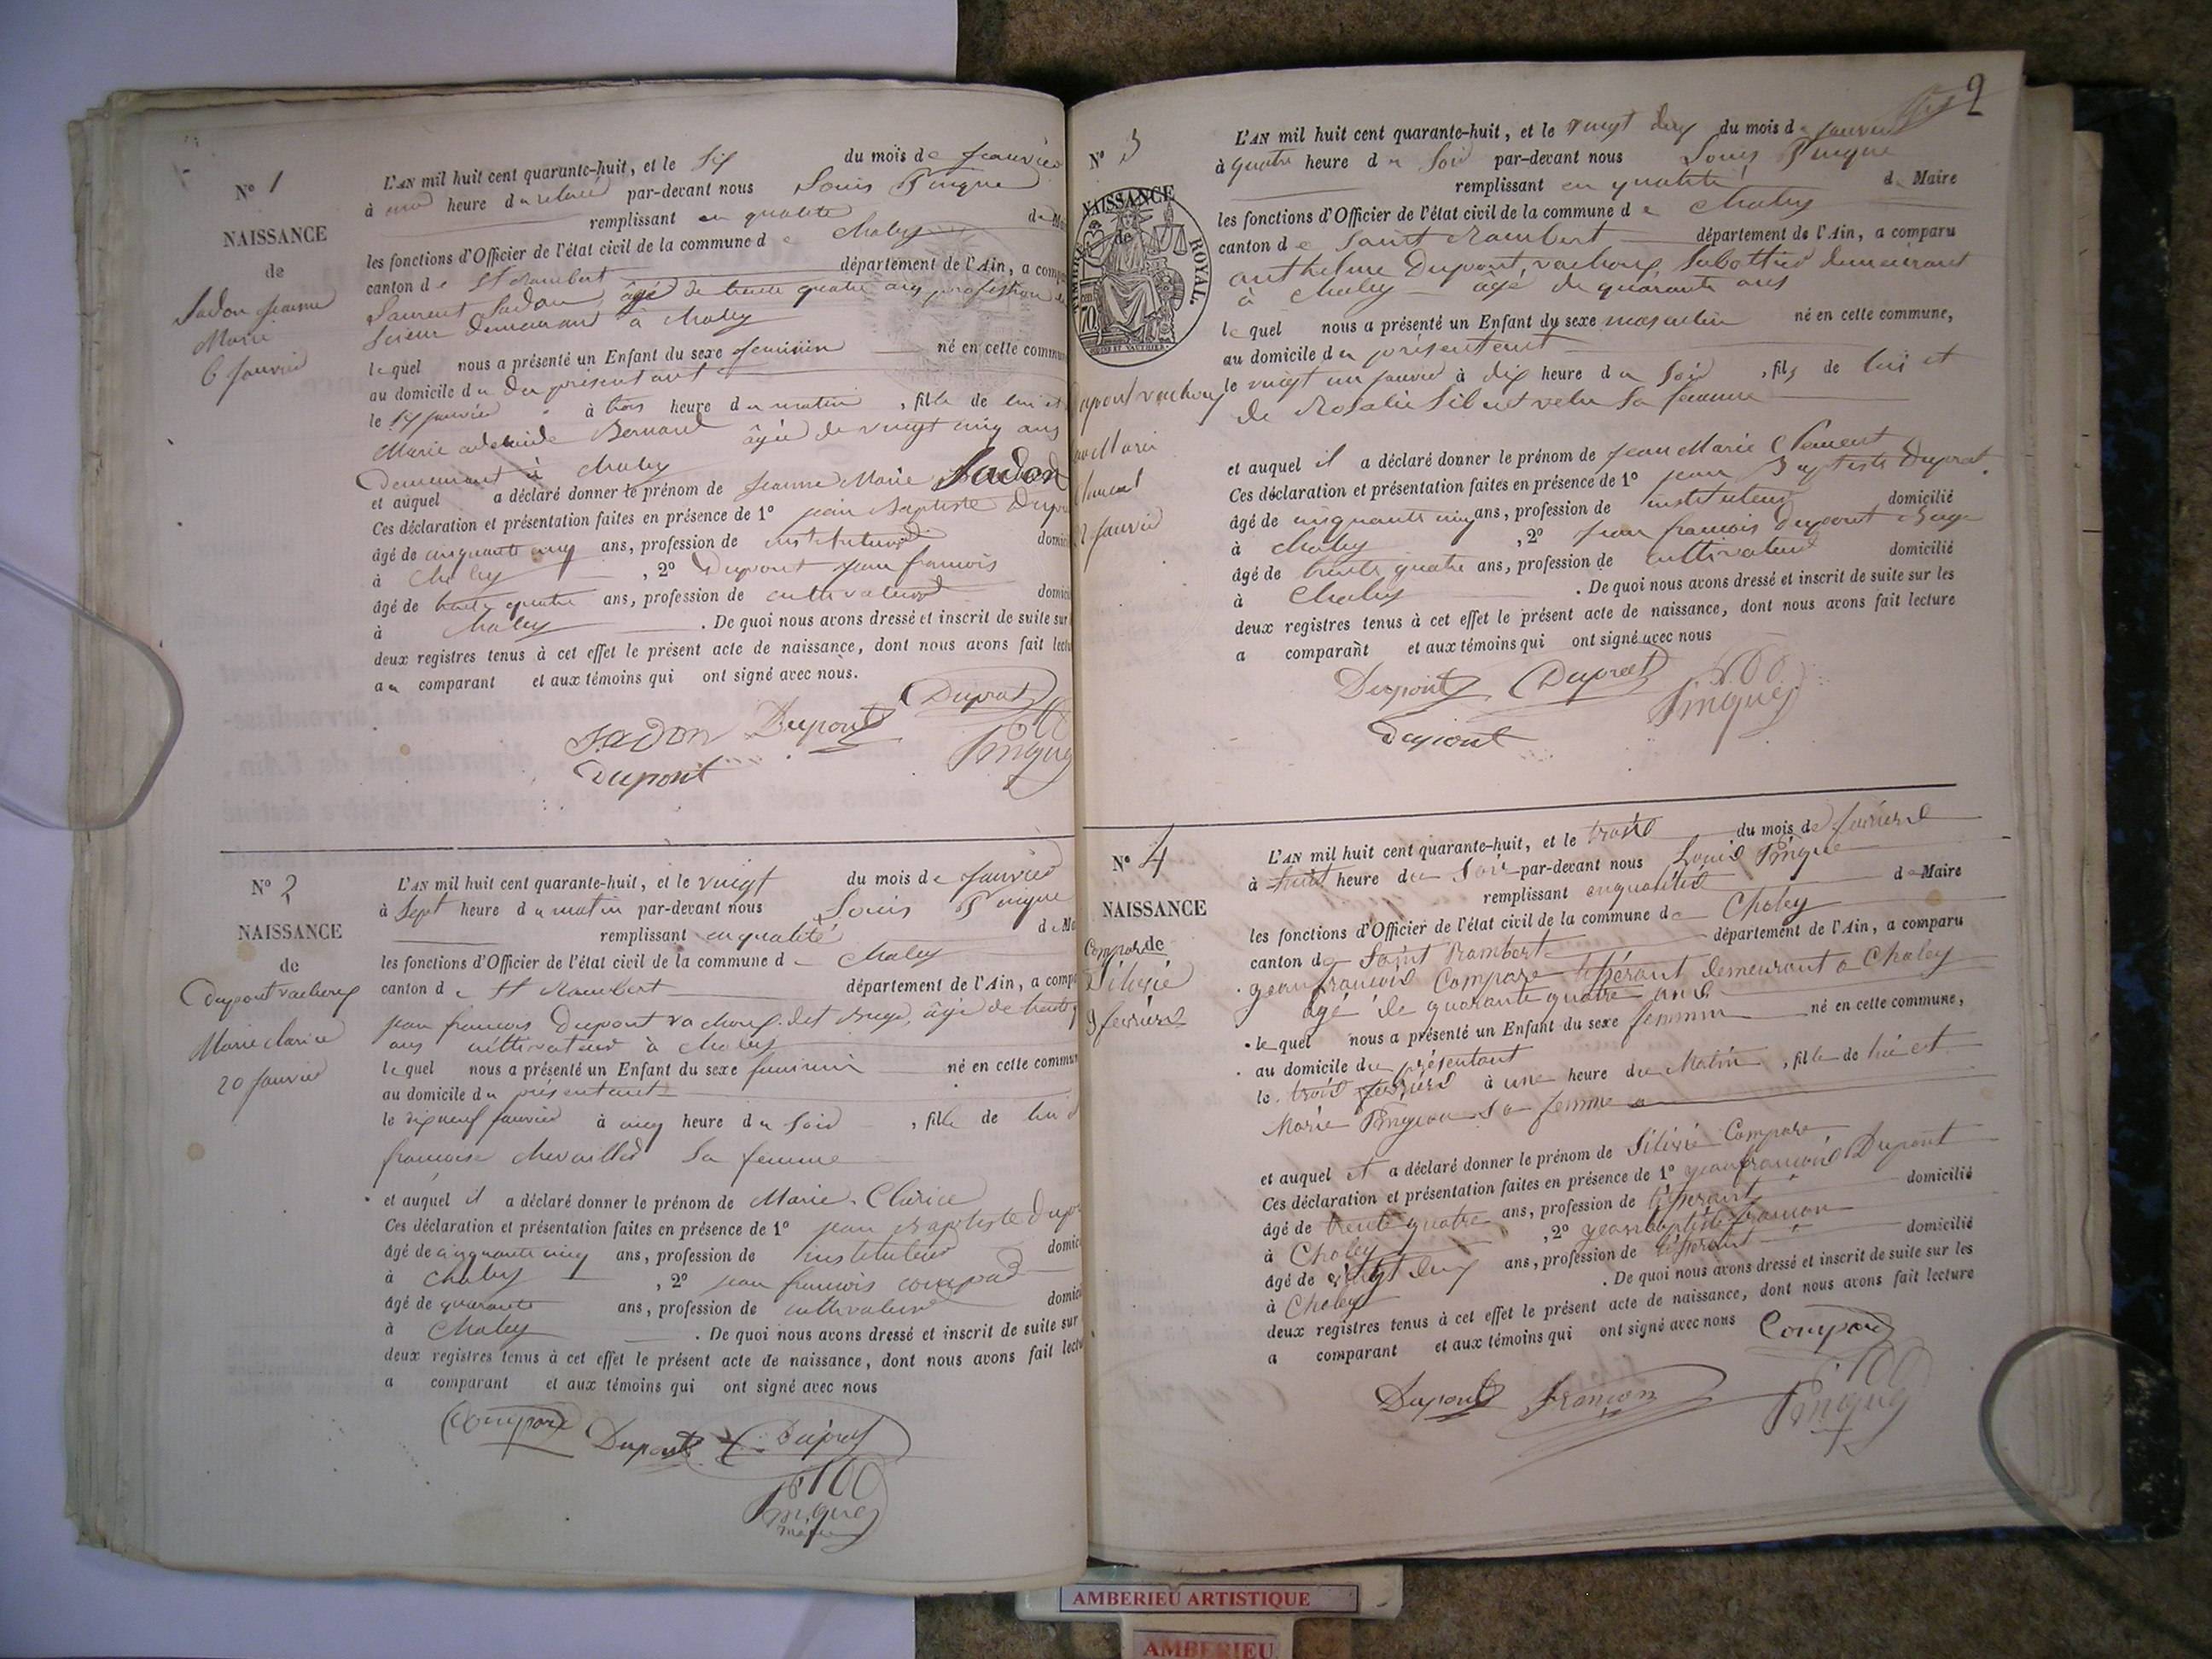 N° 1
NAISSANCE
de
Sadon Jeanne
Marie
6 janvier
L'AN mil huit cent quarante-huit, et le six du mois de janvier
à heure du par-devant nous Louis Pingue
remplissant en qualité de
les fonctions d'Officier de l'état civil de la commune de Chaley
canton de St Rambert département de l'Ain, a
Laurent Sadon, âgé de trente quatre ans profession de
demeurant à Chaley
lequel nous a présenté un Enfant du sexe feminin né en cette
au domicile du du présentant
le six janvier à trois heure du matin, fille de lui et
Marie Bernard âgée de vingt cinq ans
demeurant à Chaley
et auquel a déclaré donner le prénom de Jeanne Marie Sadon
Ces déclaration et présentation faites en présence de 1° jean Baptiste
âgé de cinquante cinq ans, profession de instituteur
à Chaley, 2° Dupont jean francois
âgé de trente quatre ans, profession de cultivateur
à Chaley. De quoi nous avons dressé et inscrit de suite sur
deux registres tenus à cet effet le présent acte de naissance, dont nous avons fait
au comparant et aux témoins qui ont signé avec nous.
Duprat
Sadon Dupont
Pingue
Dupont
N° 2
NAISSANCE
de
Dupont vachoux
Marie clarice
20 janvier
L'AN mil huit cent quarante-huit, et le vingt du mois de janvier
à Sept heure du matin par-devant nous Louis Pingue
remplissant en qualité de
les fonctions d'Officier de l'état civil de la commune de Chaley
canton de St Rambert département de l'Ain, a
jean francois Dupont vachoux dit âgé de trente
ans cultivateur à Chaley
lequel nous a présenté un Enfant du sexe feminin né en cette
au domicile du présentant
le dix neuf janvier à cinq heure du soir, fille de lui
francoise sa femme
et auquel il a déclaré donner le prénom de Marie Clarice
Ces déclaration et présentation faites en présence de 1° jean Baptiste
âgé de cinquante cinq ans, profession de instituteur
à Chaley, 2° jean francois
âgé de quarante ans, profession de cultivateur
à Chaley. De quoi nous avons dressé et inscrit de suite sur
deux registres tenus à cet effet le présent acte de naissance, dont nous avons fait
a comparant et aux témoins qui ont signé avec nous
Compare Dupont Duprat
Pingue
maire
2
N° 3
NAISSANCE
de
TIMBRE ROYAL.
70
janvier
L'AN mil huit cent quarante-huit, et le vingt deux du mois de janvier
à quatre heure du soir par-devant nous Louis Pingue
remplissant en qualité de Maire
les fonctions d'Officier de l'état civil de la commune de Chaley
canton de Saint Rambert département de l'Ain, a comparu
anthelme Dupont vachoux, sabottier demeurant
à Chaley âgé de quarante ans
lequel nous a présenté un Enfant du sexe masculin né en cette commune,
au domicile du présentant
le vingt un janvier à dix heure du soir, fils de lui et
de Rosalie sa femme
et auquel il a déclaré donner le prénom de jean Marie Clement
Ces déclaration et présentation faites en présence de 1° jean Baptiste Duprat
âgé de cinquante cinq ans, profession de instituteur domicilié
à Chaley, 2° jean francois Dupont
âgé de trente quatre ans, profession de cultivateur domicilié
à Chaley. De quoi nous avons dressé et inscrit de suite sur les
deux registres tenus à cet effet le présent acte de naissance, dont nous avons fait lecture
a comparant et aux témoins qui ont signé avec nous
Dupont Duprat
Pingue
Dupont
N° 4
NAISSANCE
de
Compare
Silivie
3 février
L'AN mil huit cent quarante-huit, et le trois du mois de février
à huit heure du soir par-devant nous Louis Pingue
remplissant en qualité de Maire
les fonctions d'Officier de l'état civil de la commune de Choley
canton de Saint Rambert département de l'Ain, a comparu
jean francois Compare tisserant demeurant a Choley
âgé de quarante quatre ans
lequel nous a présenté un Enfant du sexe feminin né en cette commune,
au domicile du présentant
le trois février à une heure du Matin, fille de lui et
Marie Pingeon sa femme
et auquel il a déclaré donner le prénom de Silivie Compare
Ces déclaration et présentation faites en présence de 1° jean francois Dupont
âgé de trente quatre ans, profession de tisserant domicilié
à Choley, 2° jean baptiste francon
âgé de vingt deux ans, profession de tisserant domicilié
à Choley. De quoi nous avons dressé et inscrit de suite sur les
deux registres tenus à cet effet le présent acte de naissance, dont nous avons fait lecture
a comparant et aux témoins qui ont signé avec nous
Compare
Dupont francon
Pingue
AMBERIEU ARTISTIQUE
AMBERIEU